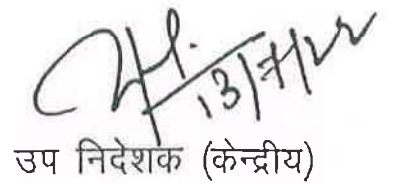 13/7/22
उप निदेशक (केन्द्रीय)